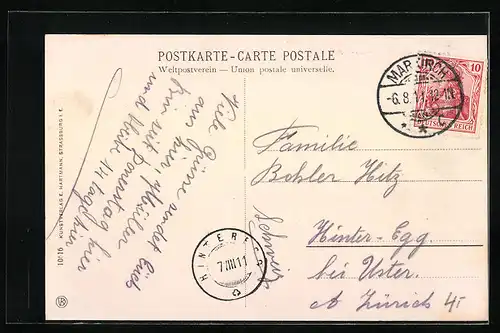 POSTKARTE - CARTE POSTALE
Weltpostverein — Union postale universelle.
MARKIRCH
-6.8.11. 12-1N
10
DEUTSCHES REICH
Viele Grüsse sendet Euch
aus hier,
bin seit Donnstag hier
und bleibe 14 tag hier
Familie
Bohler Hitz
Hinter-Egg
bei Uster.
Ct Zürich
Schweiz
HINTEREGG
7.VIII.11
10:16 KUNSTVERLAG E. HARTMANN, STRASSBURG I. E.